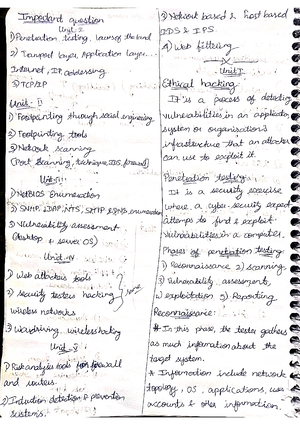 Important question
Unit-I
1) Penetration testing, Laws of the land
2) Transport layer, Application layer...
Internet, IP addressing
3) TCP/IP
Unit-II
1) Footprinting through social engineering
2) Footprinting tools
3) Network scanning
(Port scanning, technique, IDS, firewall)
Unit-III
1) NetBIOS Enumeration
2) SNMP, LDAP, NTS, SMTP & DNS enumeration
3) Vulnerability assessment
(Desktop & server OS)
Unit-IV
1) Web attackers tools
2) security testers hacking
wireless networks
3) Wardriving wireless hacking
Unit-V
1) Risk analysis tools for firewall
and routers.
2) Intrution detection & prevention
systems.
3) Network based & host based
IDS & IPS
4) Web filtering
Unit-I
Ethical hacking
It is a process of detecting
vulnerabilities in an application
system or organisation's
infrastructure that an attacker
can use to exploit it.
Penetration testing:
It is a security exercise
where a cyber-security expert
attemps to find & exploit
Vulnerabilities in a computer.
Phases of penetration testing:
1) Reconnaissance 2) scanning,
3) Vulnerability assessment,
4) exploitation 5) Reporting.
Reconnaissance:
* In this phase, the tester gathers
as much information about the
target system.
* Information include network
topology, OS, applications, user
accounts & other information.